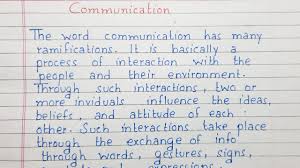 Communication
The word communication has many
ramifications. It is basically a
process of interaction with the
people and their environment.
Through such interactions, two or
more inviduals influence the ideas,
beliefs, and attitude of each
other. Such interactions take place
through the exchange of info
through words, gestures, signs,
expressions